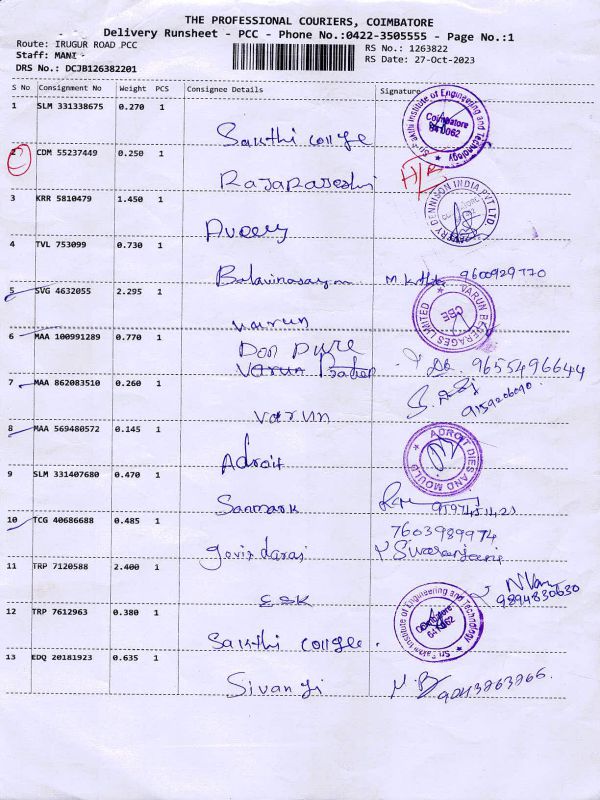 THE PROFESSIONAL COURIERS, COIMBATORE
Delivery Runsheet - PCC - Phone No.:0422-3505555 - Page No.:1
Route: IRUGUR ROAD PCC
RS No.: 1263822
Staff: MANI -
RS Date: 27-Oct-2023
DRS No.: DCJB126382201
S No Consignment No Weight PCS Consignee Details Signature
1 SLM 331338675 0.270 1
Sakthi college
Sri Sakthi Institute of Engineering and Technology
Coimbatore
641 062
2 CDM 55237449 0.250 1
Rajarajeshi
3 KRR 5810479 1.450 1
Avery
AVERY DENNISON INDIA PVT LTD
4 TVL 753099 0.730 1
Balavinayagam 9600929770
5 SVG 4632055 2.295 1
Varun
VARUN BEVERAGES LIMITED
CBE
6 MAA 100991289 0.770 1
Don Pure
Varun
9655496644
7 MAA 862083510 0.260 1
Varun
9159206090
8 MAA 569480572 0.145 1
Adroit
ADROIT DIES AND MOULD
9 SLM 331407680 0.470 1
Sanmark
10 TCG 40686688 0.485 1
7603989974
Govindaraj Sivaranjani
11 TRP 7120588 2.400 1
ESK
9894830630
12 TRP 7612963 0.380 1
Sakthi college.
Sri Sakthi Institute of Engineering and Technology
Coimbatore
641 062
13 EDQ 20181923 0.635 1
Sivanji